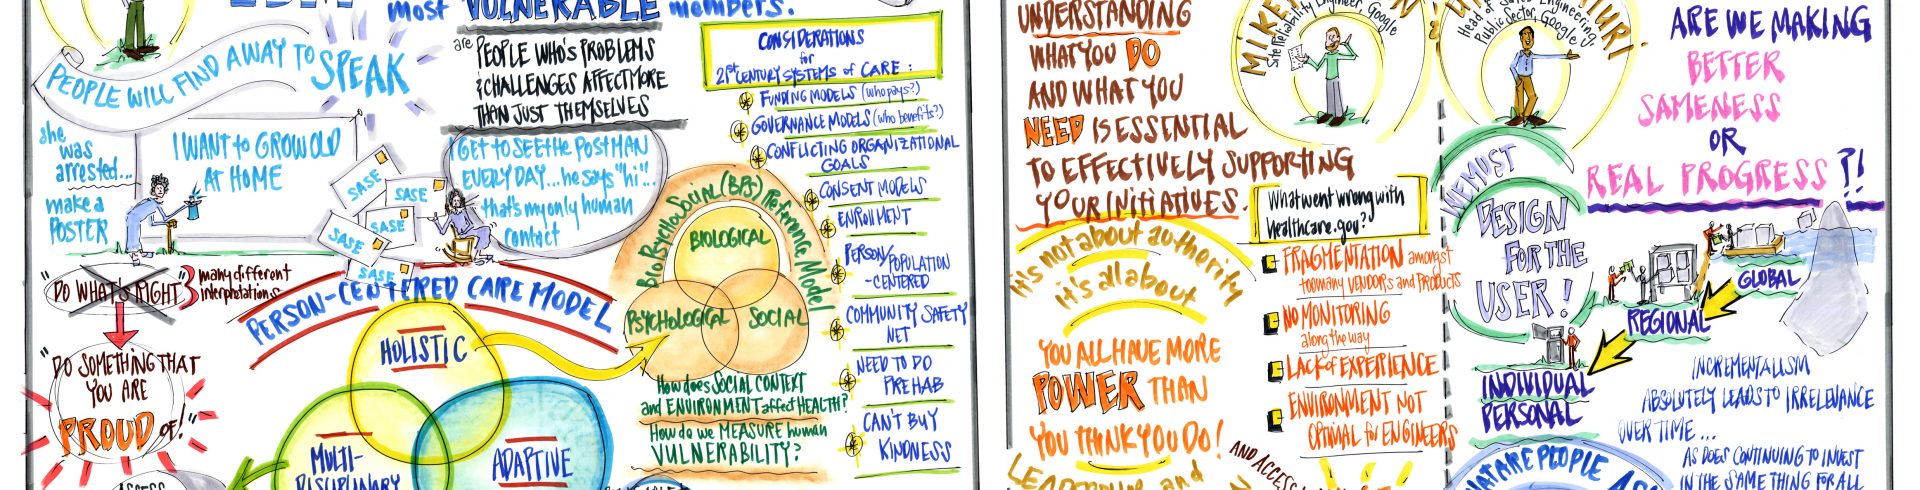 most VULNERABLE members.
are PEOPLE WHO'S PROBLEMS
& CHALLENGES AFFECT MORE
THAN JUST THEMSELVES
PEOPLE WILL FIND A WAY TO SPEAK
she
was
arrested...
make a
POSTER
I WANT to GROW OLD
AT HOME
SASE
SASE
SASE
SASE
SASE
I GET TO SEE the POSTMAN
EVERY DAY... he says "hi"...
that's my only human
contact
"DO WHAT'S RIGHT"
3 many different
interpretations
"DO SOMETHING THAT
YOU ARE
PROUD of!"
ASSESS
PERSON-CENTERED CARE MODEL
HOLISTIC
MULTI-
DISCIPLINARY
ADAPTIVE
CONSIDERATIONS
for
21st CENTURY SYSTEMS of CARE:
FUNDING MODELS (who pays?)
GOVERNANCE MODELS (who benefits?)
CONFLICTING ORGANIZATIONAL
GOALS
CONSENT MODELS
ENROLLMENT
PERSON/POPULATION
-CENTERED
COMMUNITY SAFETY
NET
NEED TO DO
PREHAB
CAN'T BUY
KINDNESS
BioPsychoSocial (BPS) Reference Model
BIOLOGICAL
PSYCHOLOGICAL
SOCIAL
How does SOCIAL CONTEXT
and ENVIRONMENT affect HEALTH?
How do we MEASURE human
VULNERABILITY?
UNDERSTANDING
WHAT YOU DO
AND WHAT YOU
NEED IS ESSENTIAL
TO EFFECTIVELY SUPPORTING
YOUR INITIATIVES.
it's not about authority
it's all about
YOU ALL HAVE MORE
POWER THAN
YOU THINK YOU DO!
LEADERSHIP and
AND ACCESS
MIKE
Site Reliability Engineer, Google
What went wrong with
healthcare.gov?
FRAGMENTATION amongst
too many VENDORS and PRODUCTS
NO MONITORING
along the way
Lack of EXPERIENCE
ENVIRONMENT NOT
OPTIMAL for ENGINEERS
Head of Sales Engineering,
Public Sector, Google
WE MUST
DESIGN
FOR THE
USER!
ARE WE MAKING
BETTER
SAMENESS
OR
REAL PROGRESS?!
GLOBAL
REGIONAL
INDIVIDUAL
PERSONAL
INCREMENTALISM
ABSOLUTELY LEADS TO IRRELEVANCE
OVER TIME...
AS DOES CONTINUING TO INVEST
IN THE SAME THING FOR ALL
WHAT ARE PEOPLE